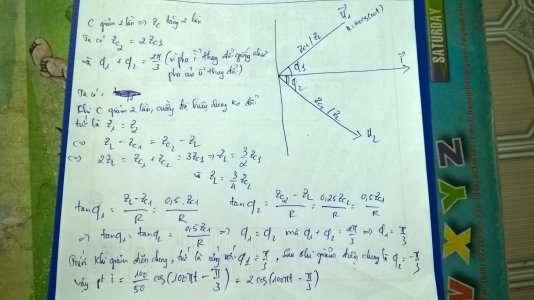 C giảm 2 lần ⇒ Zc tăng 2 lần
Ta có Zc2 = 2Zc1
và φ1 + φ2 = 2π/3 (vì pha i thay đổi giống như
pha của u thay đổi)
Ta có:
Khi C giảm 2 lần, cường độ hiệu dụng ko đổi
tức là Z1 = Z2
⇔ ZL - Zc1 = Zc2 - ZL
⇔ 2ZL = Zc1 + Zc2 = 3Zc1 ⇒ ZL = 3/2 Zc1
và ZL = 3/4 Zc2
tanφ1 = (ZL - Zc1)/R = 0,5Zc1/R
tanφ2 = (Zc2 - ZL)/R = 0,25Zc2/R = 0,5Zc1/R
⇒ tanφ1 = tanφ2 = 0,5Zc1/R ⇒ φ1 = φ2 mà φ1 + φ2 = 2π/3 ⇒ φ1 = π/3
khi giảm điện dung, tức là ứng với φ1 = π/3, sau khi giảm điện dung là φ2 = -π/3
Vậy pt i = 100/50 cos(100πt - π/3) = 2cos(100πt - π/3)
U1
Zc1/ZL
φ1
i
φ2
Zc2/ZL
U2
SATURDAY
W X Y Z